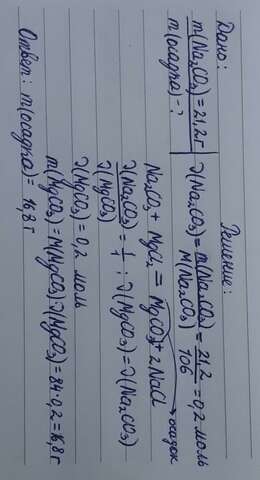 Дано:
m(Na₂CO₃) = 21,2г
m(осадка) - ?
Решение:
ν(Na₂CO₃) = m(Na₂CO₃) / M(Na₂CO₃) = 21,2 / 106 = 0,2 моль
Na₂CO₃ + MgCl₂ = MgCO₃ + 2NaCl
осадок
ν(Na₂CO₃) / ν(MgCO₃) = 1 / 1 ; ν(MgCO₃) = ν(Na₂CO₃)
ν(MgCO₃) = 0,2 моль
m(MgCO₃) = M(MgCO₃)·ν(MgCO₃) = 84·0,2 = 16,8г
Ответ: m(осадка) = 16,8г